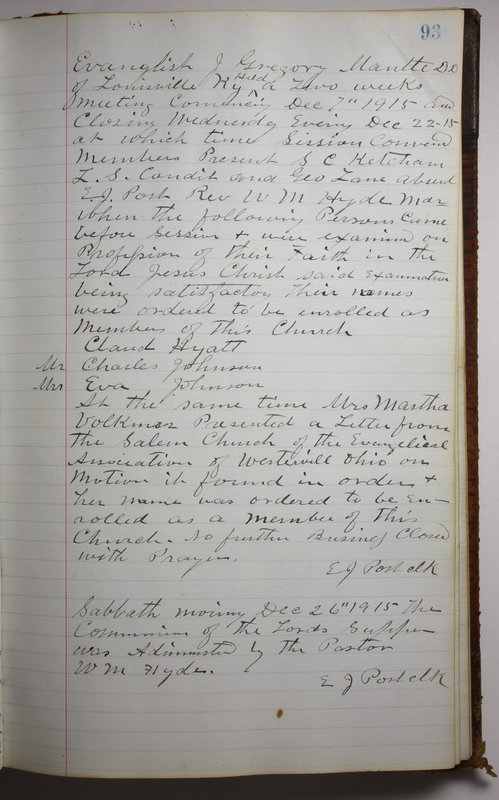 93
Evanglish J. Gregory Mantle DD
of Louisville Ky held a Two weeks
Meeting Comencing Dec 7" 1915 and
Closing Wednesday Evening Dec 22-15
at which time Session Convened
Members Present S C Ketcham
L. S. Condit and Geo Lane absent
E.J. Post Rev W M Hyde Mod
When the following Persons Came
before Session & were examined on
Profession of their Faith in the
Lord Jesus Christ said Examination
being satisfactory their names
were ordered to be enrolled as
Members of this Church
Claud Hyatt
Mr Charles Johnson
Mrs Eva Johnson
At the same time Mrs Martha
Volkmar Presented a Letter from
the Salem Church of the Evangelical
Association of Westervill Ohio on
Motion it found in order &
her name was ordered to be En-
rolled as a Member of this
Church. No further Business Closed
with Prayer.
E J Post clk
Sabbath morning Dec 26" 1915 The
Communion of the Lords Supper
was Administed by the Pastor
W M Hyde.
E J Post clk